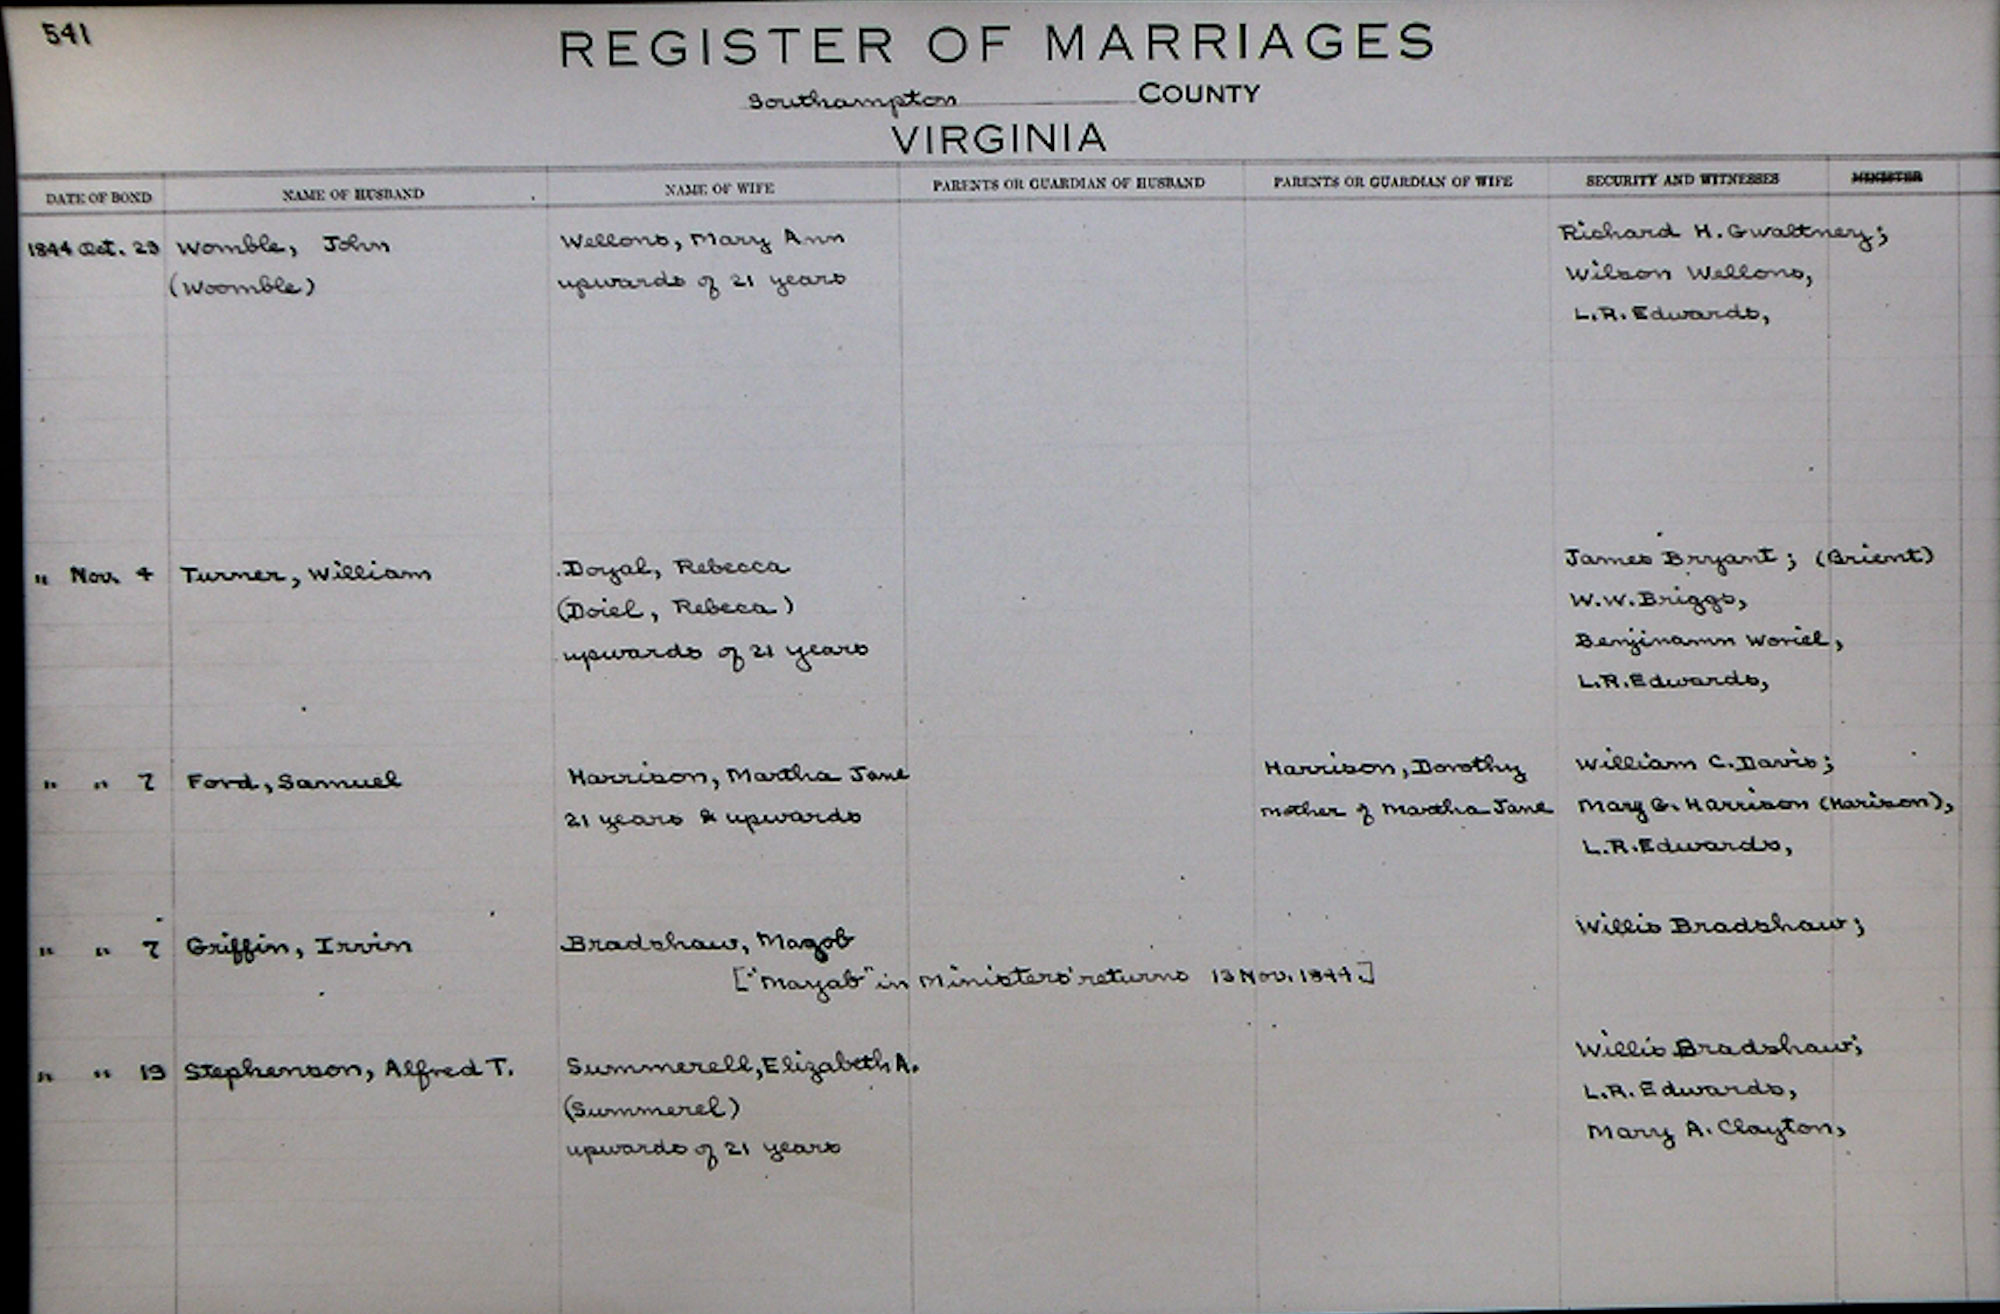 541
REGISTER OF MARRIAGES
Southampton COUNTY
VIRGINIA
DATE OF BOND NAME OF HUSBAND NAME OF WIFE PARENTS OR GUARDIAN OF HUSBAND PARENTS OR GUARDIAN OF WIFE SECURITY AND WITNESSES MINISTER
1844 Oct. 29 Womble, John Wellons, Mary Ann Richard H. Gwaltney;
(Woomble) upwards of 21 years Wilson Wellons,
L.R. Edwards,
" Nov. 4 Turner, William Doyal, Rebecca James Bryant; (Brient)
(Doiel, Rebeca) W.W. Briggs,
upwards of 21 years Benjinamn Woriel,
L.R. Edwards,
" " 7 Ford, Samuel Harrison, Martha Jane Harrison, Dorothy William C. Davis;
21 years & upwards mother of Martha Jane Mary G. Harrison (Harison),
L.R. Edwards,
" " 7 Griffin, Irvin Bradshaw, Magob Willis Bradshaw;
["Mayab" in Ministers' returns 13 Nov. 1844.]
" " 19 Stephenson, Alfred T. Summerell, Elizabeth A. Willis Bradshaw;
(Summerel) L.R. Edwards,
upwards of 21 years Mary A. Clayton,